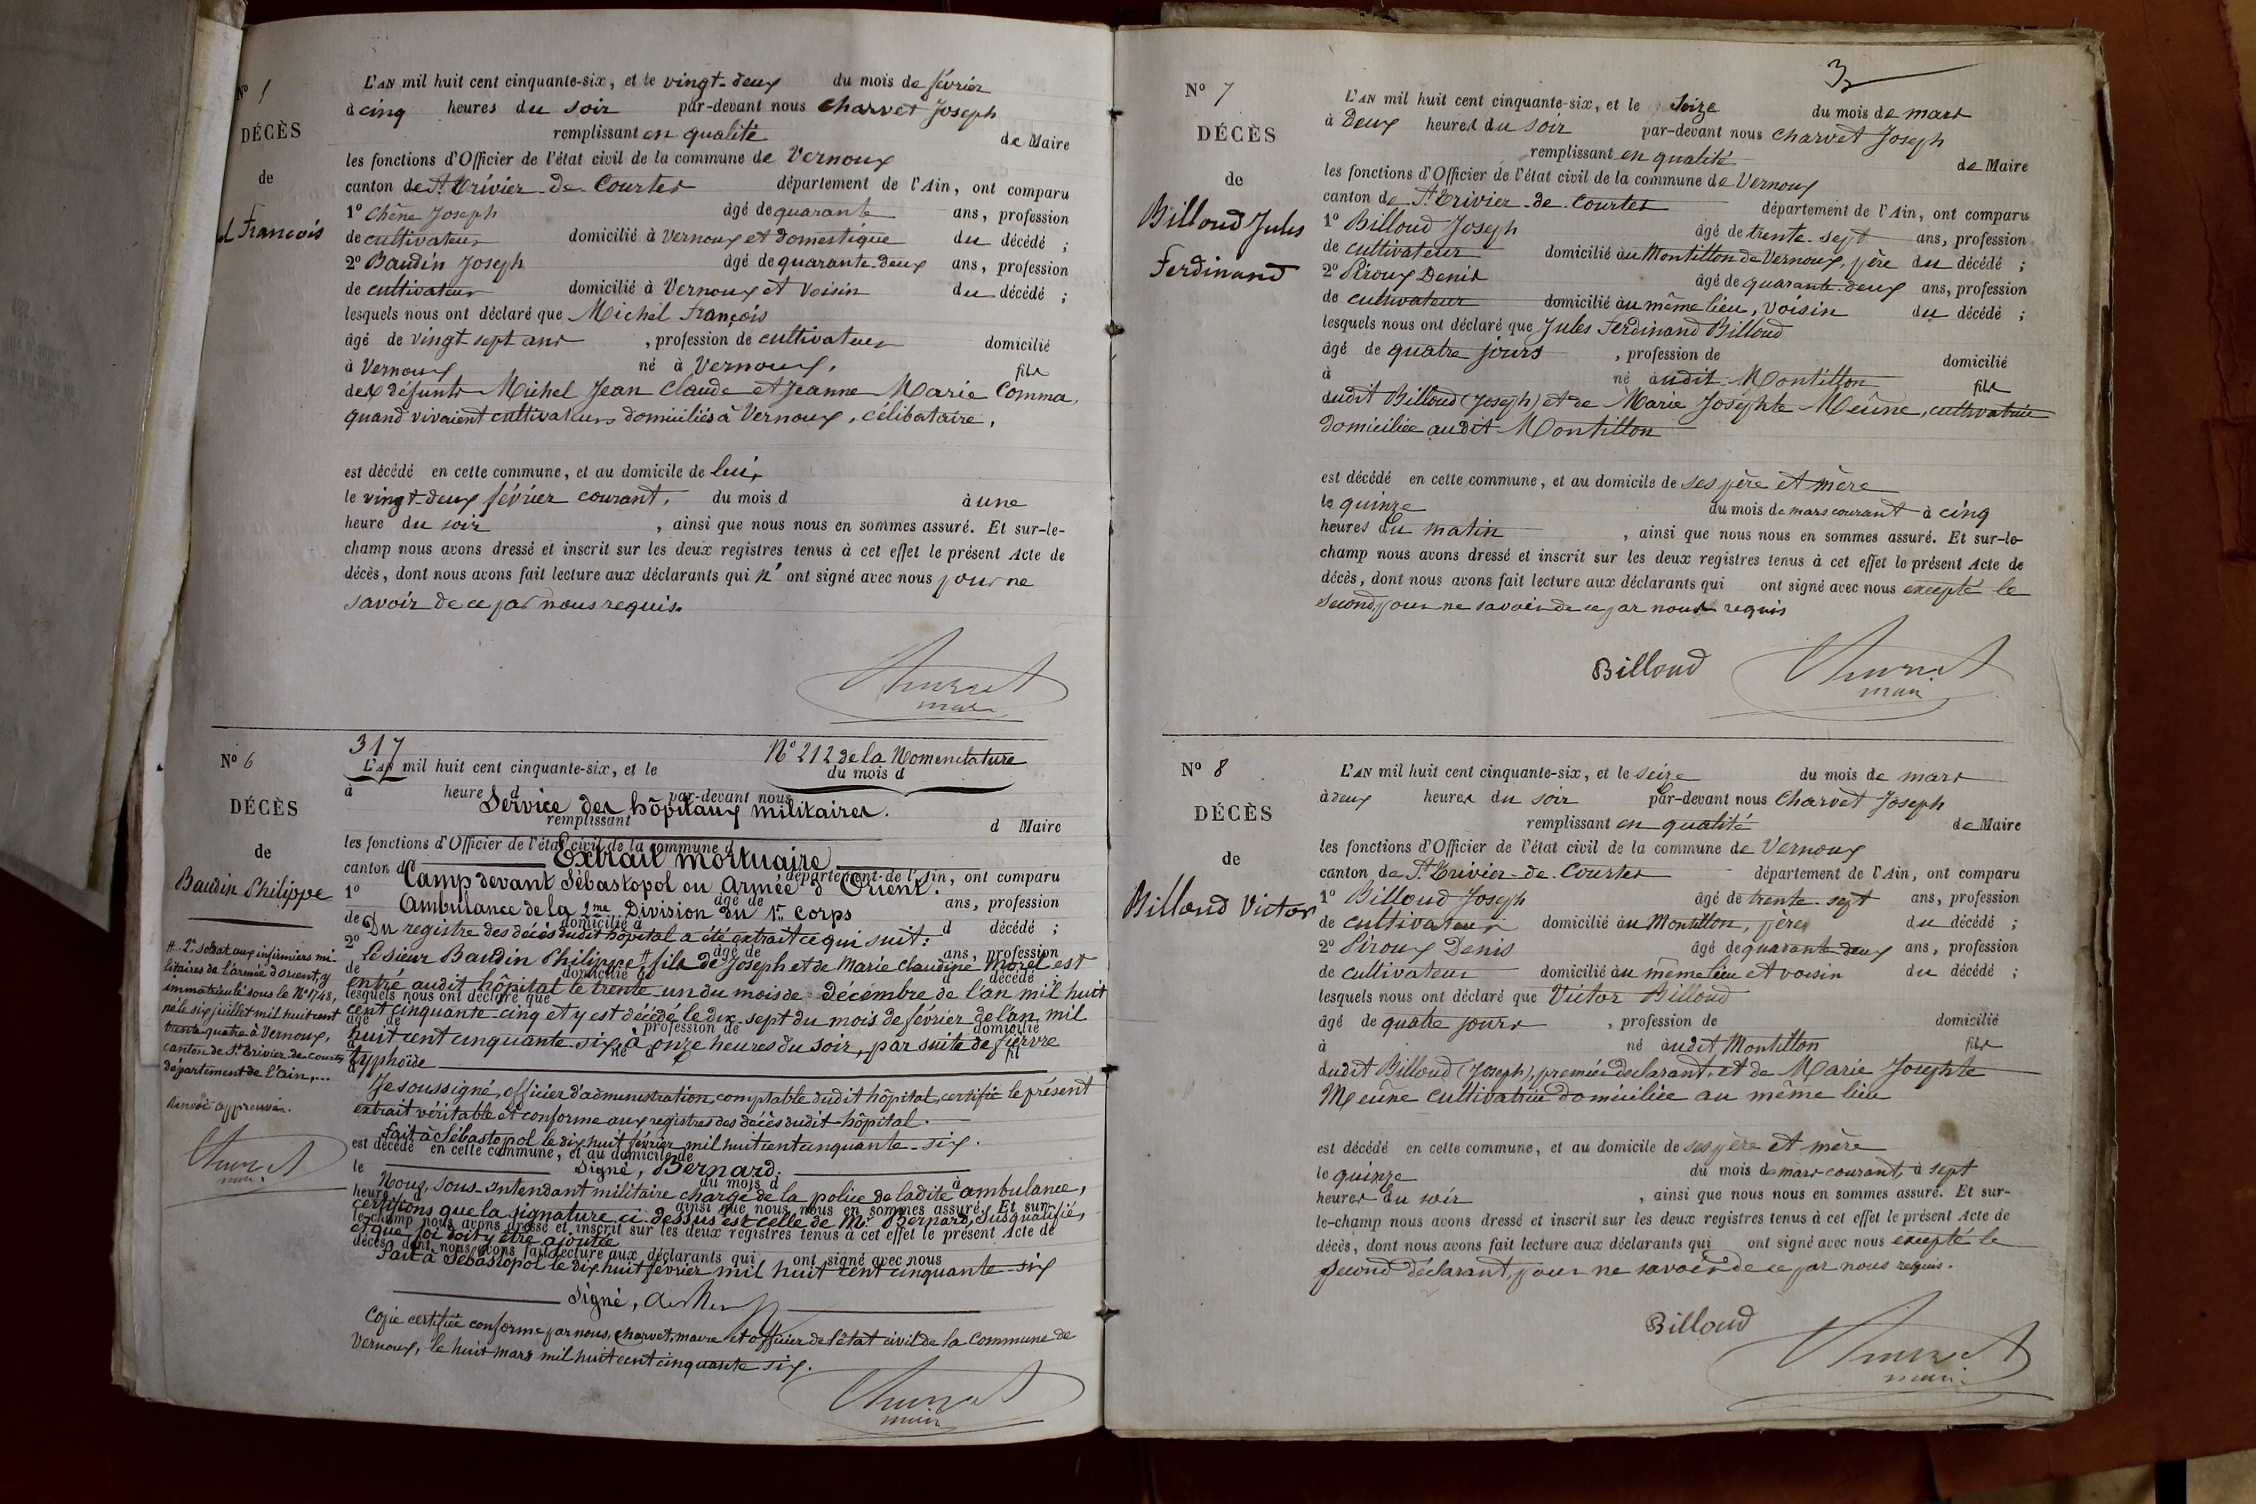 No 1
DÉCÈS
de
François
L'AN mil huit cent cinquante-six, et le vingt-deux du mois de février
à cinq heures du soir par-devant nous Charvet Joseph
remplissant en qualité de Maire
les fonctions d'Officier de l'état civil de la commune de Vernoux
canton de St Trivier-de-Courtes département de l'Ain, ont comparu
1o Chêne Joseph âgé de quarante ans, profession
de cultivateur domicilié à Vernoux et domestique du décédé ;
2o Baudin Joseph âgé de quarante-deux ans, profession
de cultivateur domicilié à Vernoux et voisin du décédé ;
lesquels nous ont déclaré que Michel François
âgé de vingt sept ans , profession de cultivateur domicilié
à Vernoux né à Vernoux, fils
des défunts Michel Jean Claude et Jeanne Marie Comma,
quand vivaient cultivateurs domiciliés à Vernoux, célibataire,
est décédé en cette commune, et au domicile de lui,
le vingt-deux février courant, du mois d à une
heure du soir , ainsi que nous nous en sommes assuré. Et sur-le-
champ nous avons dressé et inscrit sur les deux registres tenus à cet effet le présent Acte de
décès, dont nous avons fait lecture aux déclarants qui n'ont signé avec nous pour ne
savoir de ce par nous requis.
Charvet
maire
No 6
DÉCÈS
de
Baudin Philippe
317
No 212 de la Nomenclature
L'AN mil huit cent cinquante-six, et le du mois d
à heure d par-devant nous
Service des hôpitaux militaires.
remplissant d Maire
les fonctions d'Officier de l'état civil de la commune d
Extrait mortuaire
canton d département de l'Ain, ont comparu
Camp devant Sébastopol ou Armée d'Orient.
1o âgé de ans, profession
Ambulance de la 2me Division du 1er Corps
de domicilié à d décédé ;
Du registre des décès dudit hôpital a été extrait ce qui suit :
2o âgé de ans, profession
Le sieur Baudin Philippe # fils de Joseph et de Marie Claudine Morel est
de domicilié à d décédé
entré audit hôpital le trente un du mois de décembre de l'an mil huit
lesquels nous ont déclaré que
cent cinquante-cinq et y est décédé le dix-sept du mois de février de l'an mil
âgé de profession de domicilié
huit cent cinquante-six, à onze heures du soir, par suite de fièvre
à né à fil
typhoïde
Je soussigné, officier d'administration comptable dudit hôpital, certifie le présent
extrait véritable et conforme aux registres des décès dudit hôpital.
fait à Sébastopol le dix huit février mil huit cent cinquante-six.
est décédé en cette commune, et au domicile de
le Signé, Bernard.
du mois d à
Nous, sous-intendant militaire chargé de la police de ladite ambulance,
heure d ainsi que nous nous en sommes assuré. Et sur-
certifions que la signature ci-dessus est celle de Mr Bernard, susqualifié,
le-champ nous avons dressé et inscrit sur les deux registres tenus à cet effet le présent Acte de
et que foi doit y être ajoutée
décès dont nous avons fait lecture aux déclarants qui ont signé avec nous
Fait à Sébastopol le dix huit février mil huit cent cinquante-six
Signé,
Copie certifiée conforme par nous, Charvet, maire et officier de l'état civil de la Commune de
Vernoux, le huit mars mil huit cent cinquante six.
Charvet
maire
# 2e soldat aux infirmiers mi-
litaires de l'armée d'orient, y
immatriculé sous le No 1748,
né le six juillet mil huit cent
trente quatre à Vernoux,
canton de St Trivier-de-Courtes
département de l'Ain,...
Renvoi approuvé.
Charvet
maire
3
No 7
DÉCÈS
de
Billoud Jules
Ferdinand
L'AN mil huit cent cinquante-six, et le Seize du mois de mars
à deux heures du soir par-devant nous Charvet Joseph
remplissant en qualité de Maire
les fonctions d'Officier de l'état civil de la commune de Vernoux
canton de St Trivier-de-Courtes département de l'Ain, ont comparu
1o Billoud Joseph âgé de trente-sept ans, profession
de cultivateur domicilié au Montillon de Vernoux, père du décédé ;
2o Piroux Denis âgé de quarante-deux ans, profession
de cultivateur domicilié au même lieu, voisin du décédé ;
lesquels nous ont déclaré que Jules Ferdinand Billoud
âgé de quatre jours , profession de domicilié
à né audit Montillon fils
dudit Billoud (Joseph) et de Marie Josephte Meûne, cultivatrice
domiciliée audit Montillon
est décédé en cette commune, et au domicile de ses père et mère
le quinze du mois de mars courant à cinq
heures du matin , ainsi que nous nous en sommes assuré. Et sur-le-
champ nous avons dressé et inscrit sur les deux registres tenus à cet effet le présent Acte de
décès, dont nous avons fait lecture aux déclarants qui ont signé avec nous excepté le
second, pour ne savoir de ce par nous requis
Billoud Charvet
maire
No 8
DÉCÈS
de
Billoud Victor
L'AN mil huit cent cinquante-six, et le seize du mois de mars
à deux heures du soir par-devant nous Charvet Joseph
remplissant en qualité de Maire
les fonctions d'Officier de l'état civil de la commune de Vernoux
canton de St Trivier-de-Courtes département de l'Ain, ont comparu
1o Billoud Joseph âgé de trente-sept ans, profession
de cultivateur domicilié au Montillon, père du décédé ;
2o Piroux Denis âgé de quarante deux ans, profession
de cultivateur domicilié au même lieu et voisin du décédé ;
lesquels nous ont déclaré que Victor Billoud
âgé de quatre jours , profession de domicilié
à né audit Montillon fils
dudit Billoud (Joseph), premier déclarant, et de Marie Josephte
Meûne cultivatrice domiciliée au même lieu
est décédé en cette commune, et au domicile de ses père et mère
le quinze du mois de mars courant, à sept
heures du soir , ainsi que nous nous en sommes assuré. Et sur-
le-champ nous avons dressé et inscrit sur les deux registres tenus à cet effet le présent Acte de
décès, dont nous avons fait lecture aux déclarants qui ont signé avec nous excepté le
second déclarant, pour ne savoir de ce par nous requis.
Billoud
Charvet
maire